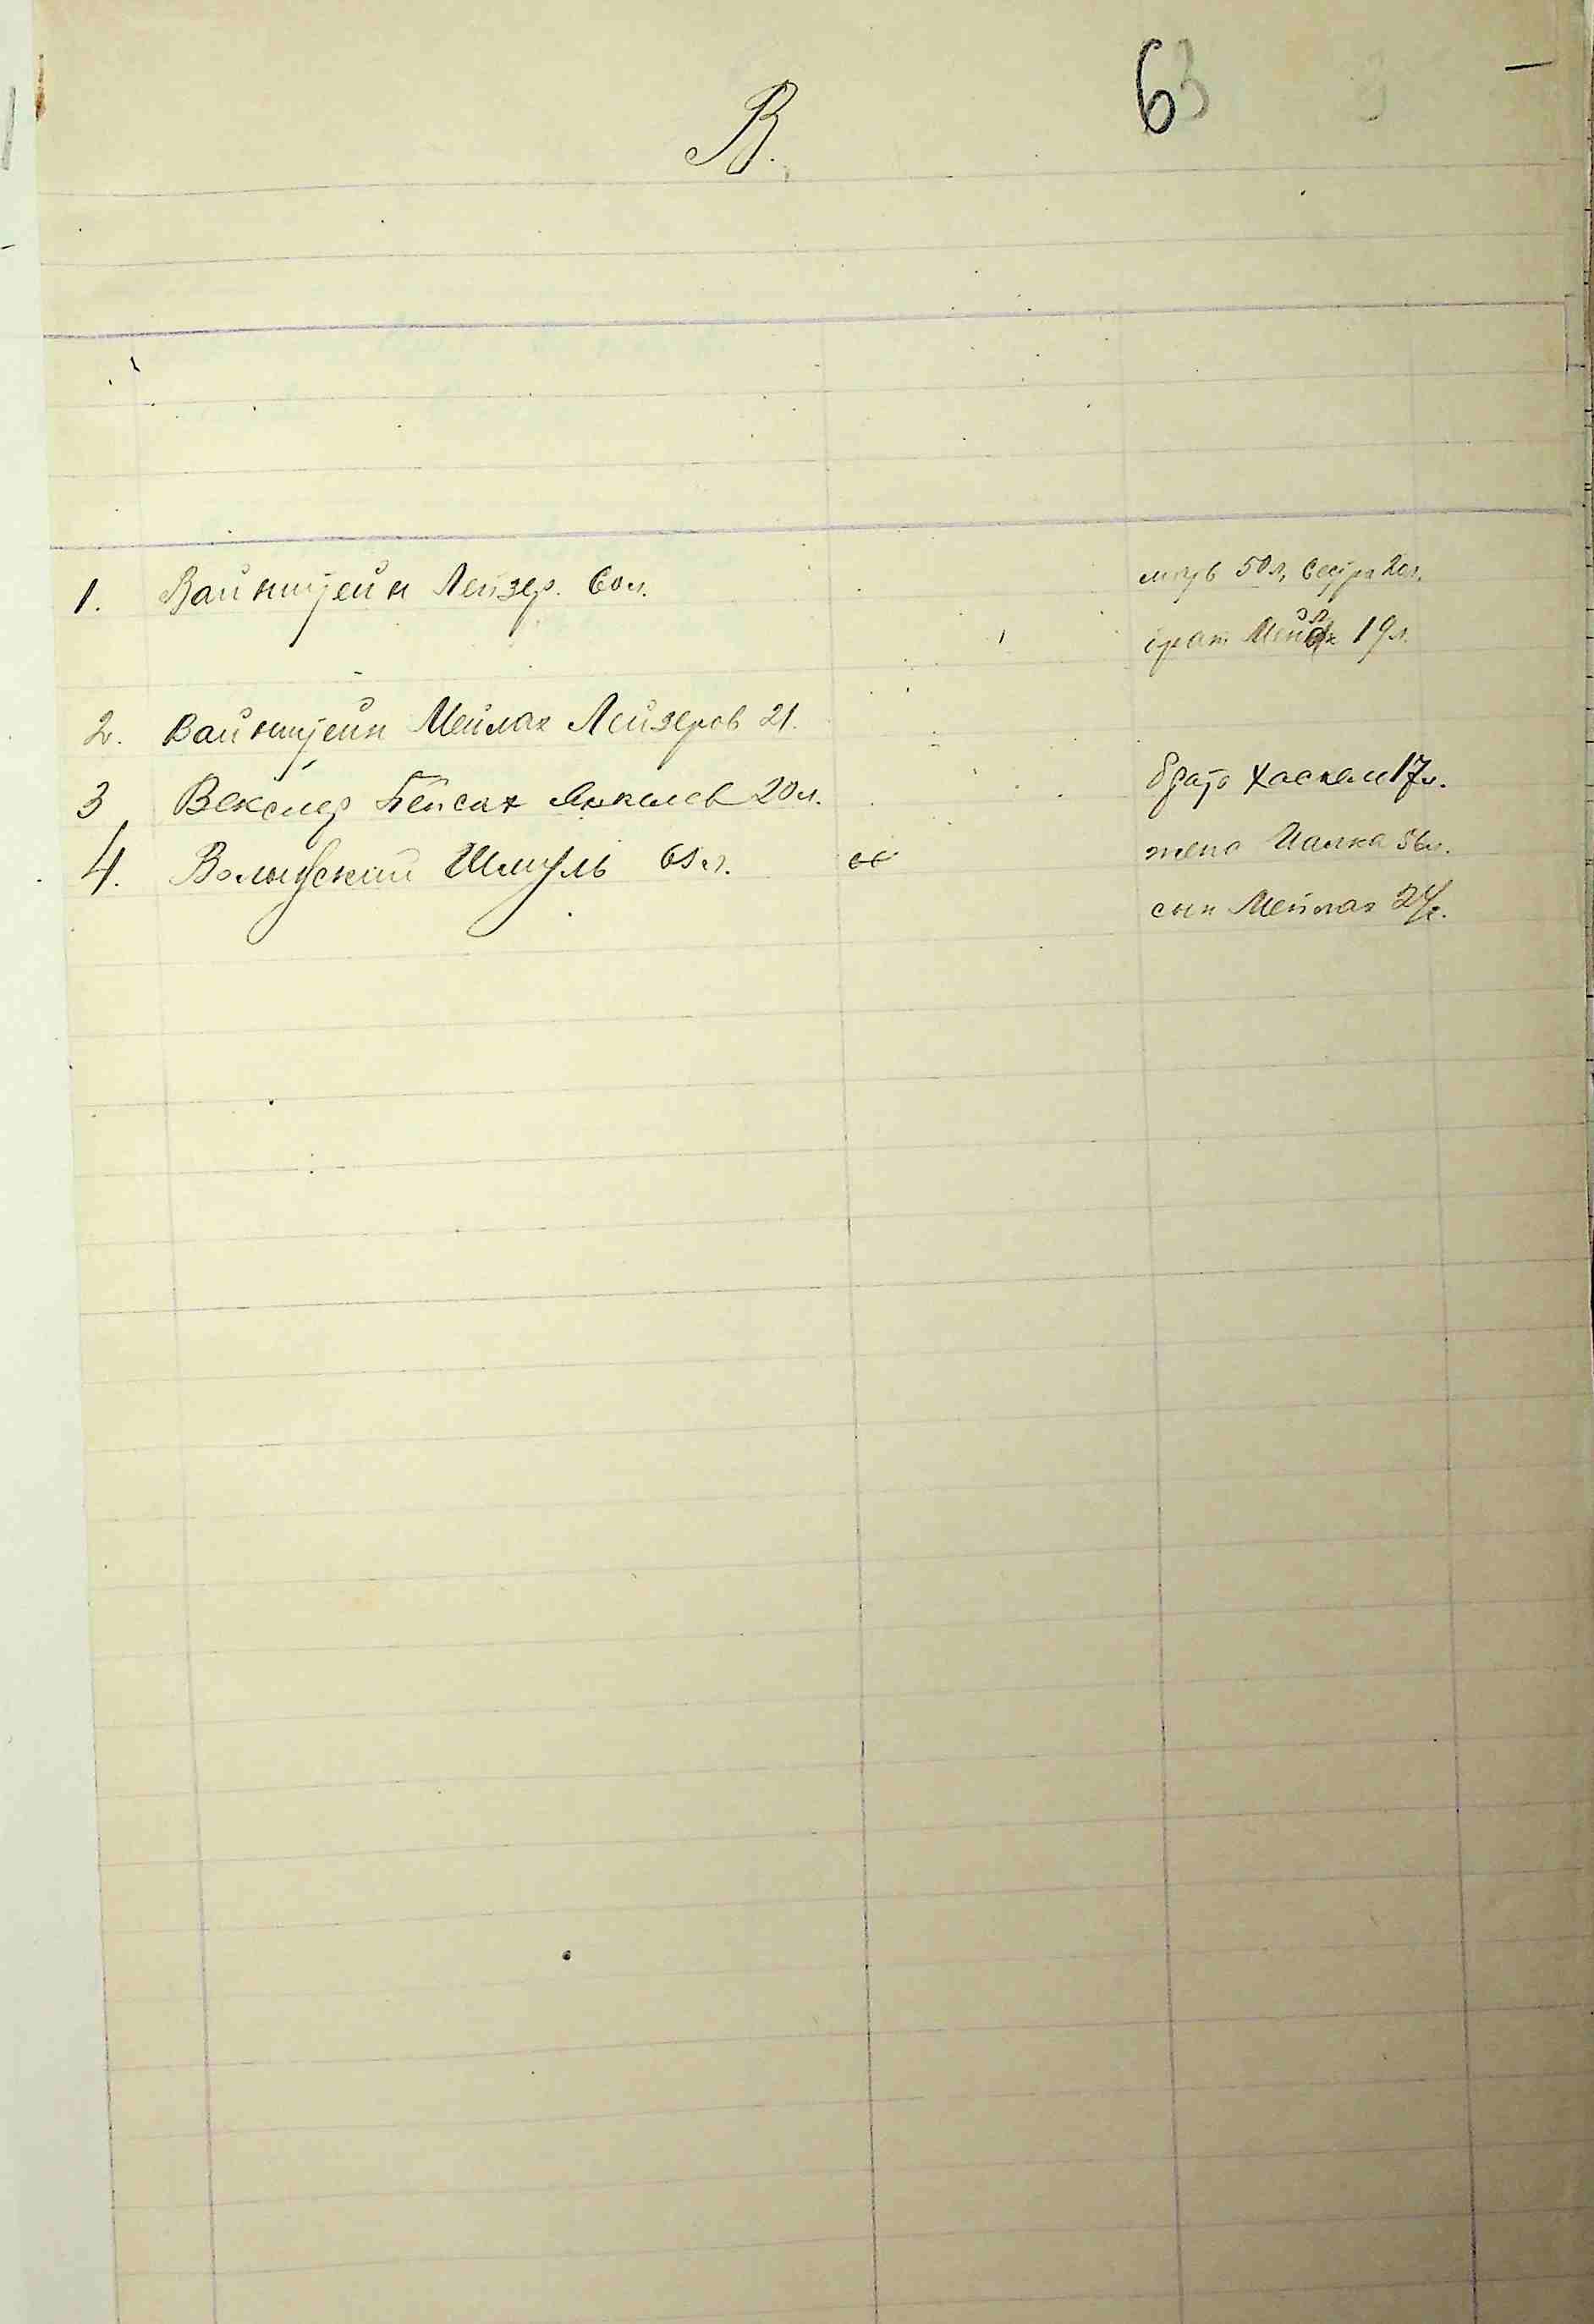 63
В.
1. Вайнштейн Лейзер. 60 л. мать 50 л, сестра 20 л.
брат 19 л.
2. Вайнштейн Мейлах Лейзеров 21.
3 Векслер Пейсах Янкелев 20 л. брат Хаскел 17 л.
4. Волынский Шмуль 61 л. жена 56 л.
сын Мейлах 24 г.